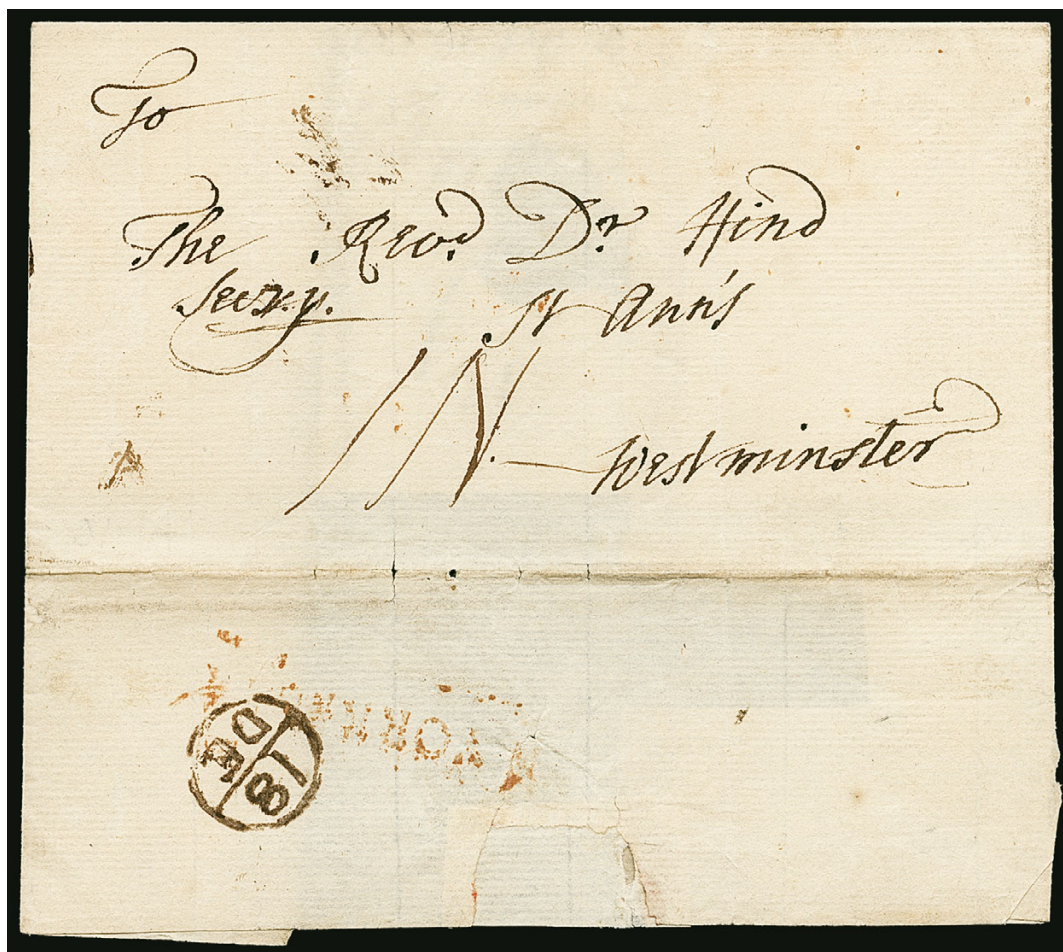 To
The Revd. Dr. Hind
Secry. St Ann's
IN
Westminster
DE
18